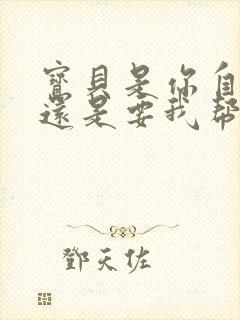 寶貝是你自
還是要我幫
鄧天佐